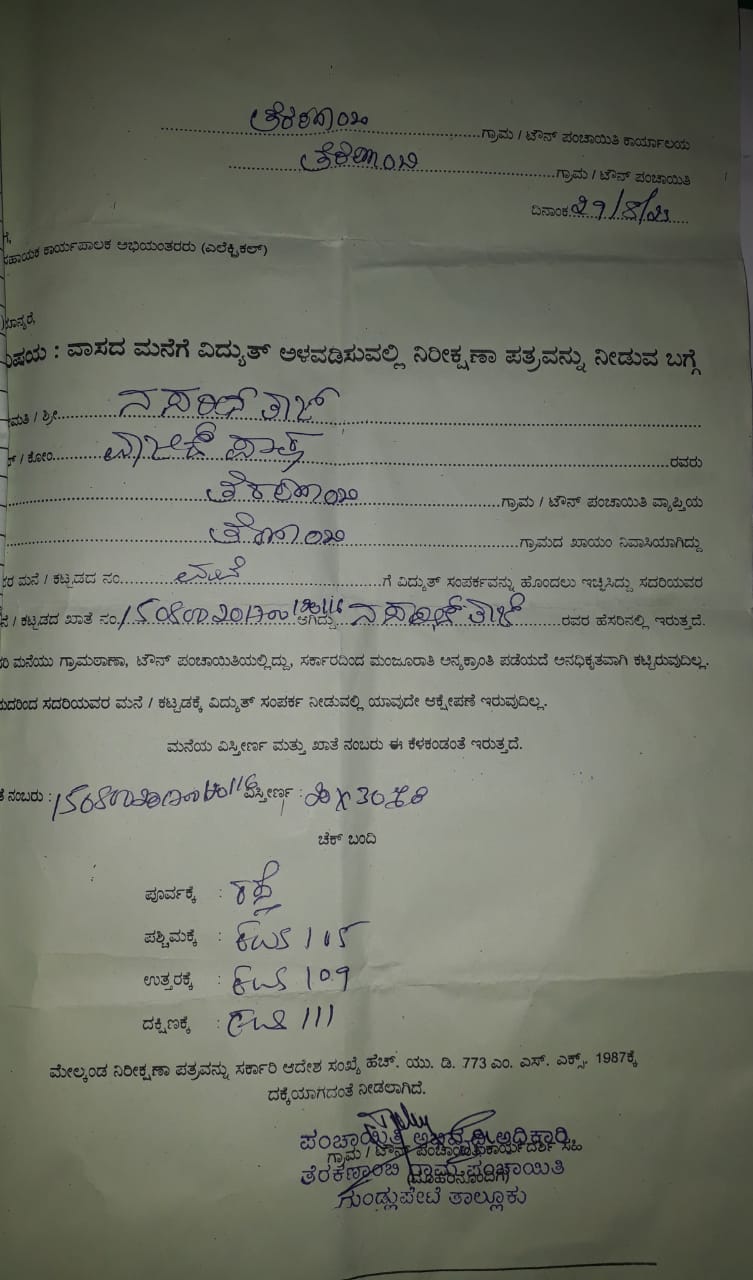 ತೆರಕಣಾಂಬಿ ಗ್ರಾಮ / ಟೌನ್ ಪಂಚಾಯಿತಿ ಕಾರ್ಯಾಲಯ
ತೆರಕಣಾಂಬಿ ಗ್ರಾಮ / ಟೌನ್ ಪಂಚಾಯಿತಿ
ದಿನಾಂಕ 29/8/23
ಗೆ,
ಸಹಾಯಕ ಕಾರ್ಯಪಾಲಕ ಅಭಿಯಂತರರು (ಎಲೆಕ್ಟ್ರಿಕಲ್)
ಮಾನ್ಯರೆ,
ವಿಷಯ : ವಾಸದ ಮನೆಗೆ ವಿದ್ಯುತ್ ಅಳವಡಿಸುವಲ್ಲಿ ನಿರೀಕ್ಷಣಾ ಪತ್ರವನ್ನು ನೀಡುವ ಬಗ್ಗೆ
ಮತಿ / ಶ್ರೀ ನಸರೀನ್ ತಾಜ್
/ ಕೋಂ ರವರು
ತೆರಕಣಾಂಬಿ ಗ್ರಾಮ / ಟೌನ್ ಪಂಚಾಯಿತಿ ವ್ಯಾಪ್ತಿಯ
ಗ್ರಾಮದ ಖಾಯಂ ನಿವಾಸಿಯಾಗಿದ್ದು
ಮನೆ / ಕಟ್ಟಡದ ನಂ ಗೆ ವಿದ್ಯುತ್ ಸಂಪರ್ಕವನ್ನು ಹೊಂದಲು ಇಚ್ಛಿಸಿದ್ದು ಸದರಿಯವರ
/ ಕಟ್ಟಡದ ಖಾತೆ ನಂ. ಆಗಿದ್ದು ತಾಜ್ ರವರ ಹೆಸರಿನಲ್ಲಿ ಇರುತ್ತದೆ.
ಮನೆಯು ಗ್ರಾಮಠಾಣಾ, ಟೌನ್ ಪಂಚಾಯಿತಿಯಲ್ಲಿದ್ದು, ಸರ್ಕಾರದಿಂದ ಮಂಜೂರಾತಿ ಅನ್ಯಕ್ರಾಂತಿ ಪಡೆಯದೆ ಅನಧಿಕೃತವಾಗಿ ಕಟ್ಟಿರುವುದಿಲ್ಲ.
ಸದರಿಯವರ ಮನೆ / ಕಟ್ಟಡಕ್ಕೆ ವಿದ್ಯುತ್ ಸಂಪರ್ಕ ನೀಡುವಲ್ಲಿ ಯಾವುದೇ ಆಕ್ಷೇಪಣೆ ಇರುವುದಿಲ್ಲ.
ಮನೆಯ ವಿಸ್ತೀರ್ಣ ಮತ್ತು ಖಾತೆ ನಂಬರು ಈ ಕೆಳಕಂಡಂತೆ ಇರುತ್ತದೆ.
ನಂಬರು : ವಿಸ್ತೀರ್ಣ :
ಚೆಕ್ ಬಂದಿ
ಪೂರ್ವಕ್ಕೆ : ರಸ್ತೆ
ಪಶ್ಚಿಮಕ್ಕೆ : EWS 105
ಉತ್ತರಕ್ಕೆ : EWS 109
ದಕ್ಷಿಣಕ್ಕೆ : EWS 111
ಮೇಲ್ಕಂಡ ನಿರೀಕ್ಷಣಾ ಪತ್ರವನ್ನು ಸರ್ಕಾರಿ ಆದೇಶ ಸಂಖ್ಯೆ ಹೆಚ್. ಯು. ಡಿ. 773 ಎಂ. ಎಸ್. ಎಕ್ಸ್. 1987ಕ್ಕೆ
ದಕ್ಕೆಯಾಗದಂತೆ ನೀಡಲಾಗಿದೆ.
ಪಂಚಾಯಿತಿ ಅಭಿವೃದ್ಧಿ ಅಧಿಕಾರಿ
ಗ್ರಾಮ / ಟೌನ್ ಪಂಚಾಯಿತಿ ಕಾರ್ಯದರ್ಶಿ ಸಹಿ
ತೆರಕಣಾಂಬಿ ಗ್ರಾಮ ಪಂಚಾಯಿತಿ
(ಮೊಹರಿನೊಂದಿಗೆ)
ಗುಂಡ್ಲುಪೇಟೆ ತಾಲ್ಲೂಕು